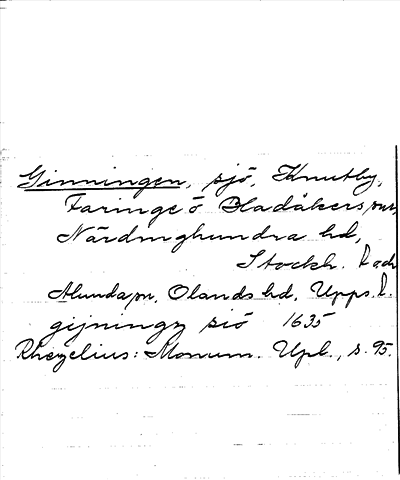 Ginningen, sjö, Knutby,
Faringe o Bladåkers snr,
Närdinghundra hd,
Stockh. l och
Alunda sn, Olands hd, Upps. l.
gijningz siö 1635
Rhezelius: Monum. Upl., s. 95.